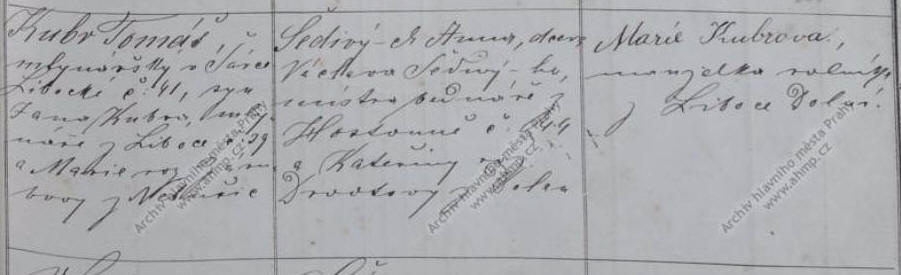 Kubr Tomáš,
mlynářský v Šárce
Libocké č. 41, syn
Jana Kubra, mly-
náře z Liboce č. 29
a Marie roz.
z
Šedivý-ch Anna, dcera
Václava Šedivý-ho,
mistra bednáře z
Hostouně č. 44
a Kateřiny roz.
z
Marie Kubrova,
manželka rolníka
z Liboce Dolní.
Archiv hlavního města Prahy
www.ahmp.cz
Archiv hlavního města Prahy
www.ahmp.cz
Archiv hlavního města Prahy
www.ahmp.cz